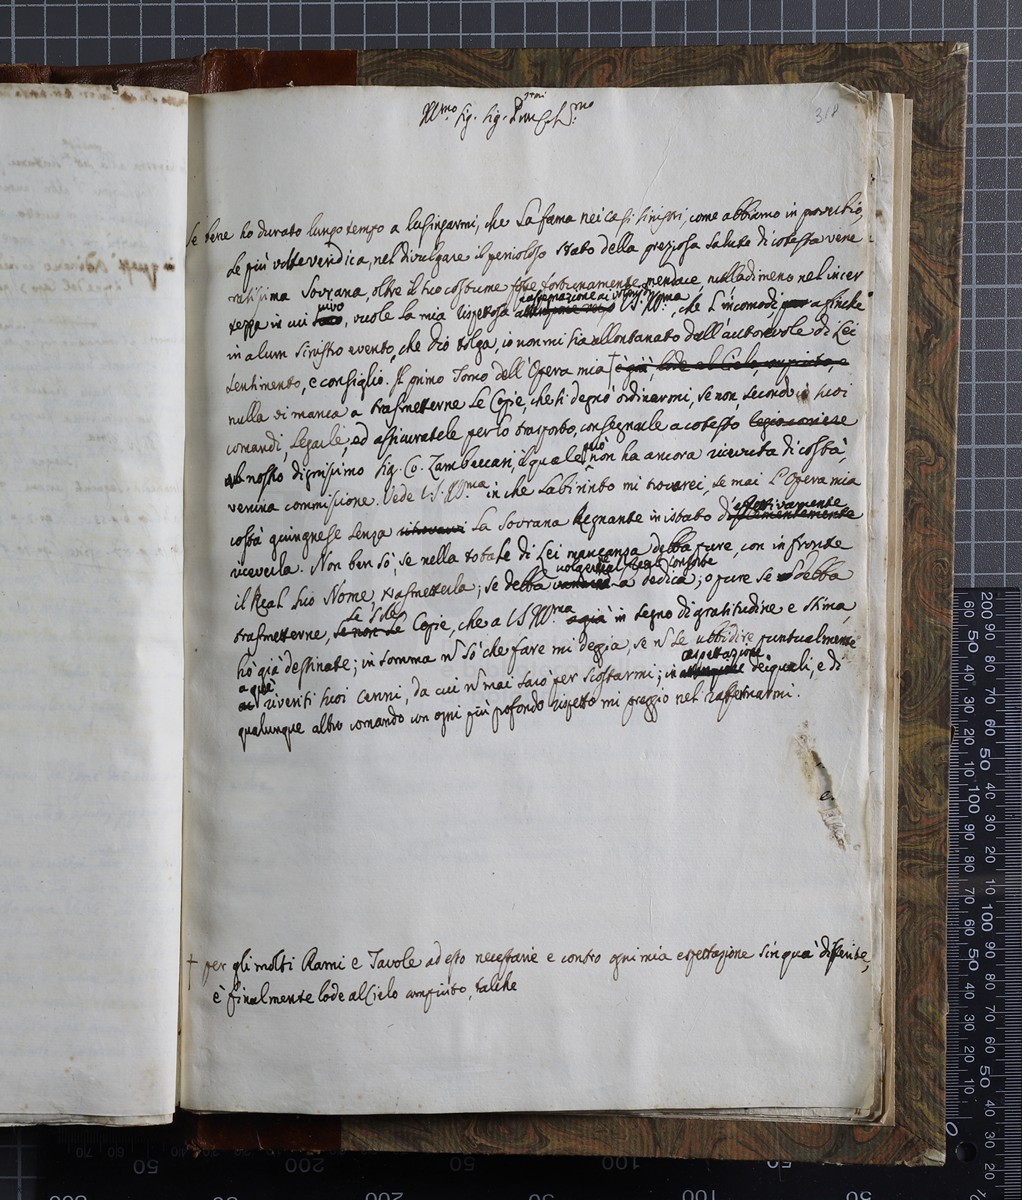 Ill.mo Sig. Sig. P.rone Col.mo
318
Se bene ho durato lungo tempo a lusingarmi, che La fama nei casi sinistri, come abbiamo in proverbio,
Le più volte veridica, nel divulgare il pericoloso stato della preziosa salute di cotesta vene-
ratissima Sovrana, oltre il suo costume fosse fortunatamente mendace, nulladimeno nel incer
rassegnazione ai
vivo
tezza in cui, vuole La mia rispettosa V.S. Ill.ma, che L'incomodi, affinché
in alcun sinistro evento, che Dio tolga, io non mi sia allontanato dall'autorevole di Lei
sentimento, e consiglio. Il primo Tomo dell'Opera mia † è già, lode al Cielo compito, e
nulla si manca a trasmetterne Le Copie, che si degnò ordinarmi, se non, secondo i suoi
comandi, Legarle, ed assicuratele per lo trasporto, consegnarle a cotesto
nostro degnissimo Sig. Co. Zambeccari, il quale però non ha ancora ricevuta di costà,
veruna commissione. Vede V.S. Ill.ma in che Labirinto mi troverei, se mai L'Opera mia
effettivamente
costà giungnesse senza La Sovrana Regnante in istato di
riceverla. Non ben sò, se nella totale di Lei mancanza debba pure, con in fronte
volgere al Real Consorte
il Real suo Nome, trasmetterla; se debba La dedica; o pure se debba
Le sole
trasmetterne, se non Le Copie, che a V.S. Ill.ma a già in segno di gratitudine e stima,
hò già destinate; in somma ñ sò che fare mi degia, se ñ Le ubbidire puntualmente
aspettazione
a quei riveriti suoi cenni, da cui ñ mai sarò per scostarmi; in de quali, e di
qualunque altro comando con ogni più profondo rispetto mi preggio nel raffermarmi.
† per gli molti Rami e Tavole ad esso necessarie e contro ogni mia espettazione sin quà differite,
è finalmente lode al Cielo compiuto, talche